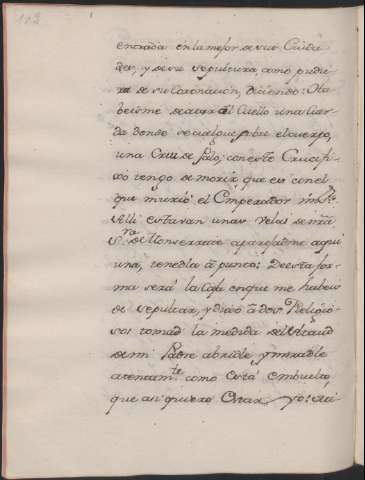 102
entrada en la mejor de sus Ciuda
des, y de su sepultura, como pudie
ra de su Coronacion, diciendo: Ha
beisme de atar al Cuello una Cuer
da donde se cuelgue sobre el cuerpo,
una Cruz de palo; con este Crucifi
xo tengo de morir, que es con el
que murió el Emperador mi S.r
Alli estavan unas velas de ntra
S.ra de Monserrate aparejadme aqui
una, tenedla á punto: De esta for
ma será la Caja en que me habeis
de sepultar, y dixo á dos Religio
sos tomad la medida del Ataud
de mi Padre abridle y miradle
atentam.te como está embuelto,
que asi quiero estar yo: